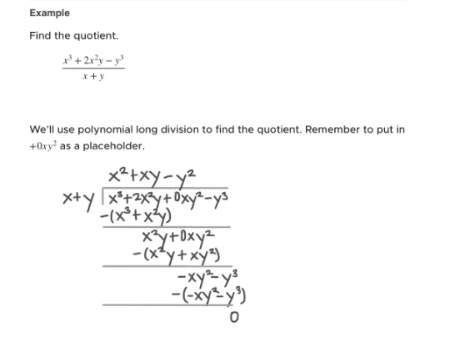 Example
Find the quotient.
x³ + 2x²y – y³
x + y
We'll use polynomial long division to find the quotient. Remember to put in
+0xy² as a placeholder.
x²+xy-y²
x+y x³+2x²y+0xy²-y³
-(x³+x²y)
x²y+0xy²
-(x²y+xy²)
-xy²-y³
-(-xy²-y³)
0